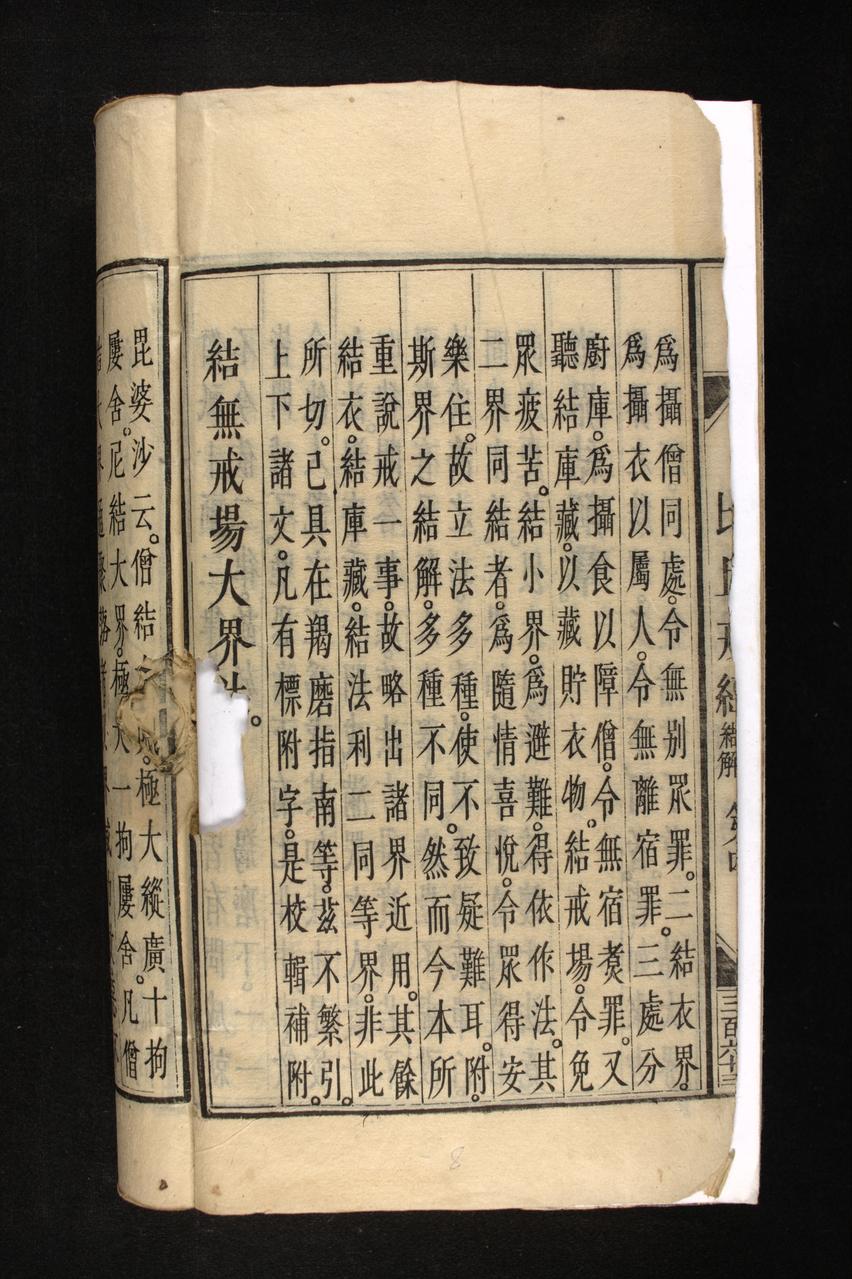 結解
爲攝僧同處。令無別眾罪。二結衣界。
爲攝衣以屬人。令無離宿罪。三處分
廚庫。爲攝食以障僧。令無宿煑罪。又
聽結庫藏。以藏貯衣物。結戒場。令免
眾疲苦。結小界。爲避難。得依作法。其
二界同結者。爲隨情喜悅。令眾得安
樂住。故立法多種。使不致疑難耳。附。
斯界之結解。多種不同。然而今本所
重說戒一事。故略出諸界近用。其餘
結衣。結庫藏。結法利二同等界。非此
所切。已具在羯磨指南等。茲不繁引。
上下諸文。凡有標附字。是校輯補附。
結無戒場大界。
毘婆沙云。僧結極大縱廣十拘
屢舍。尼結大界。極大一拘屢舍。凡僧